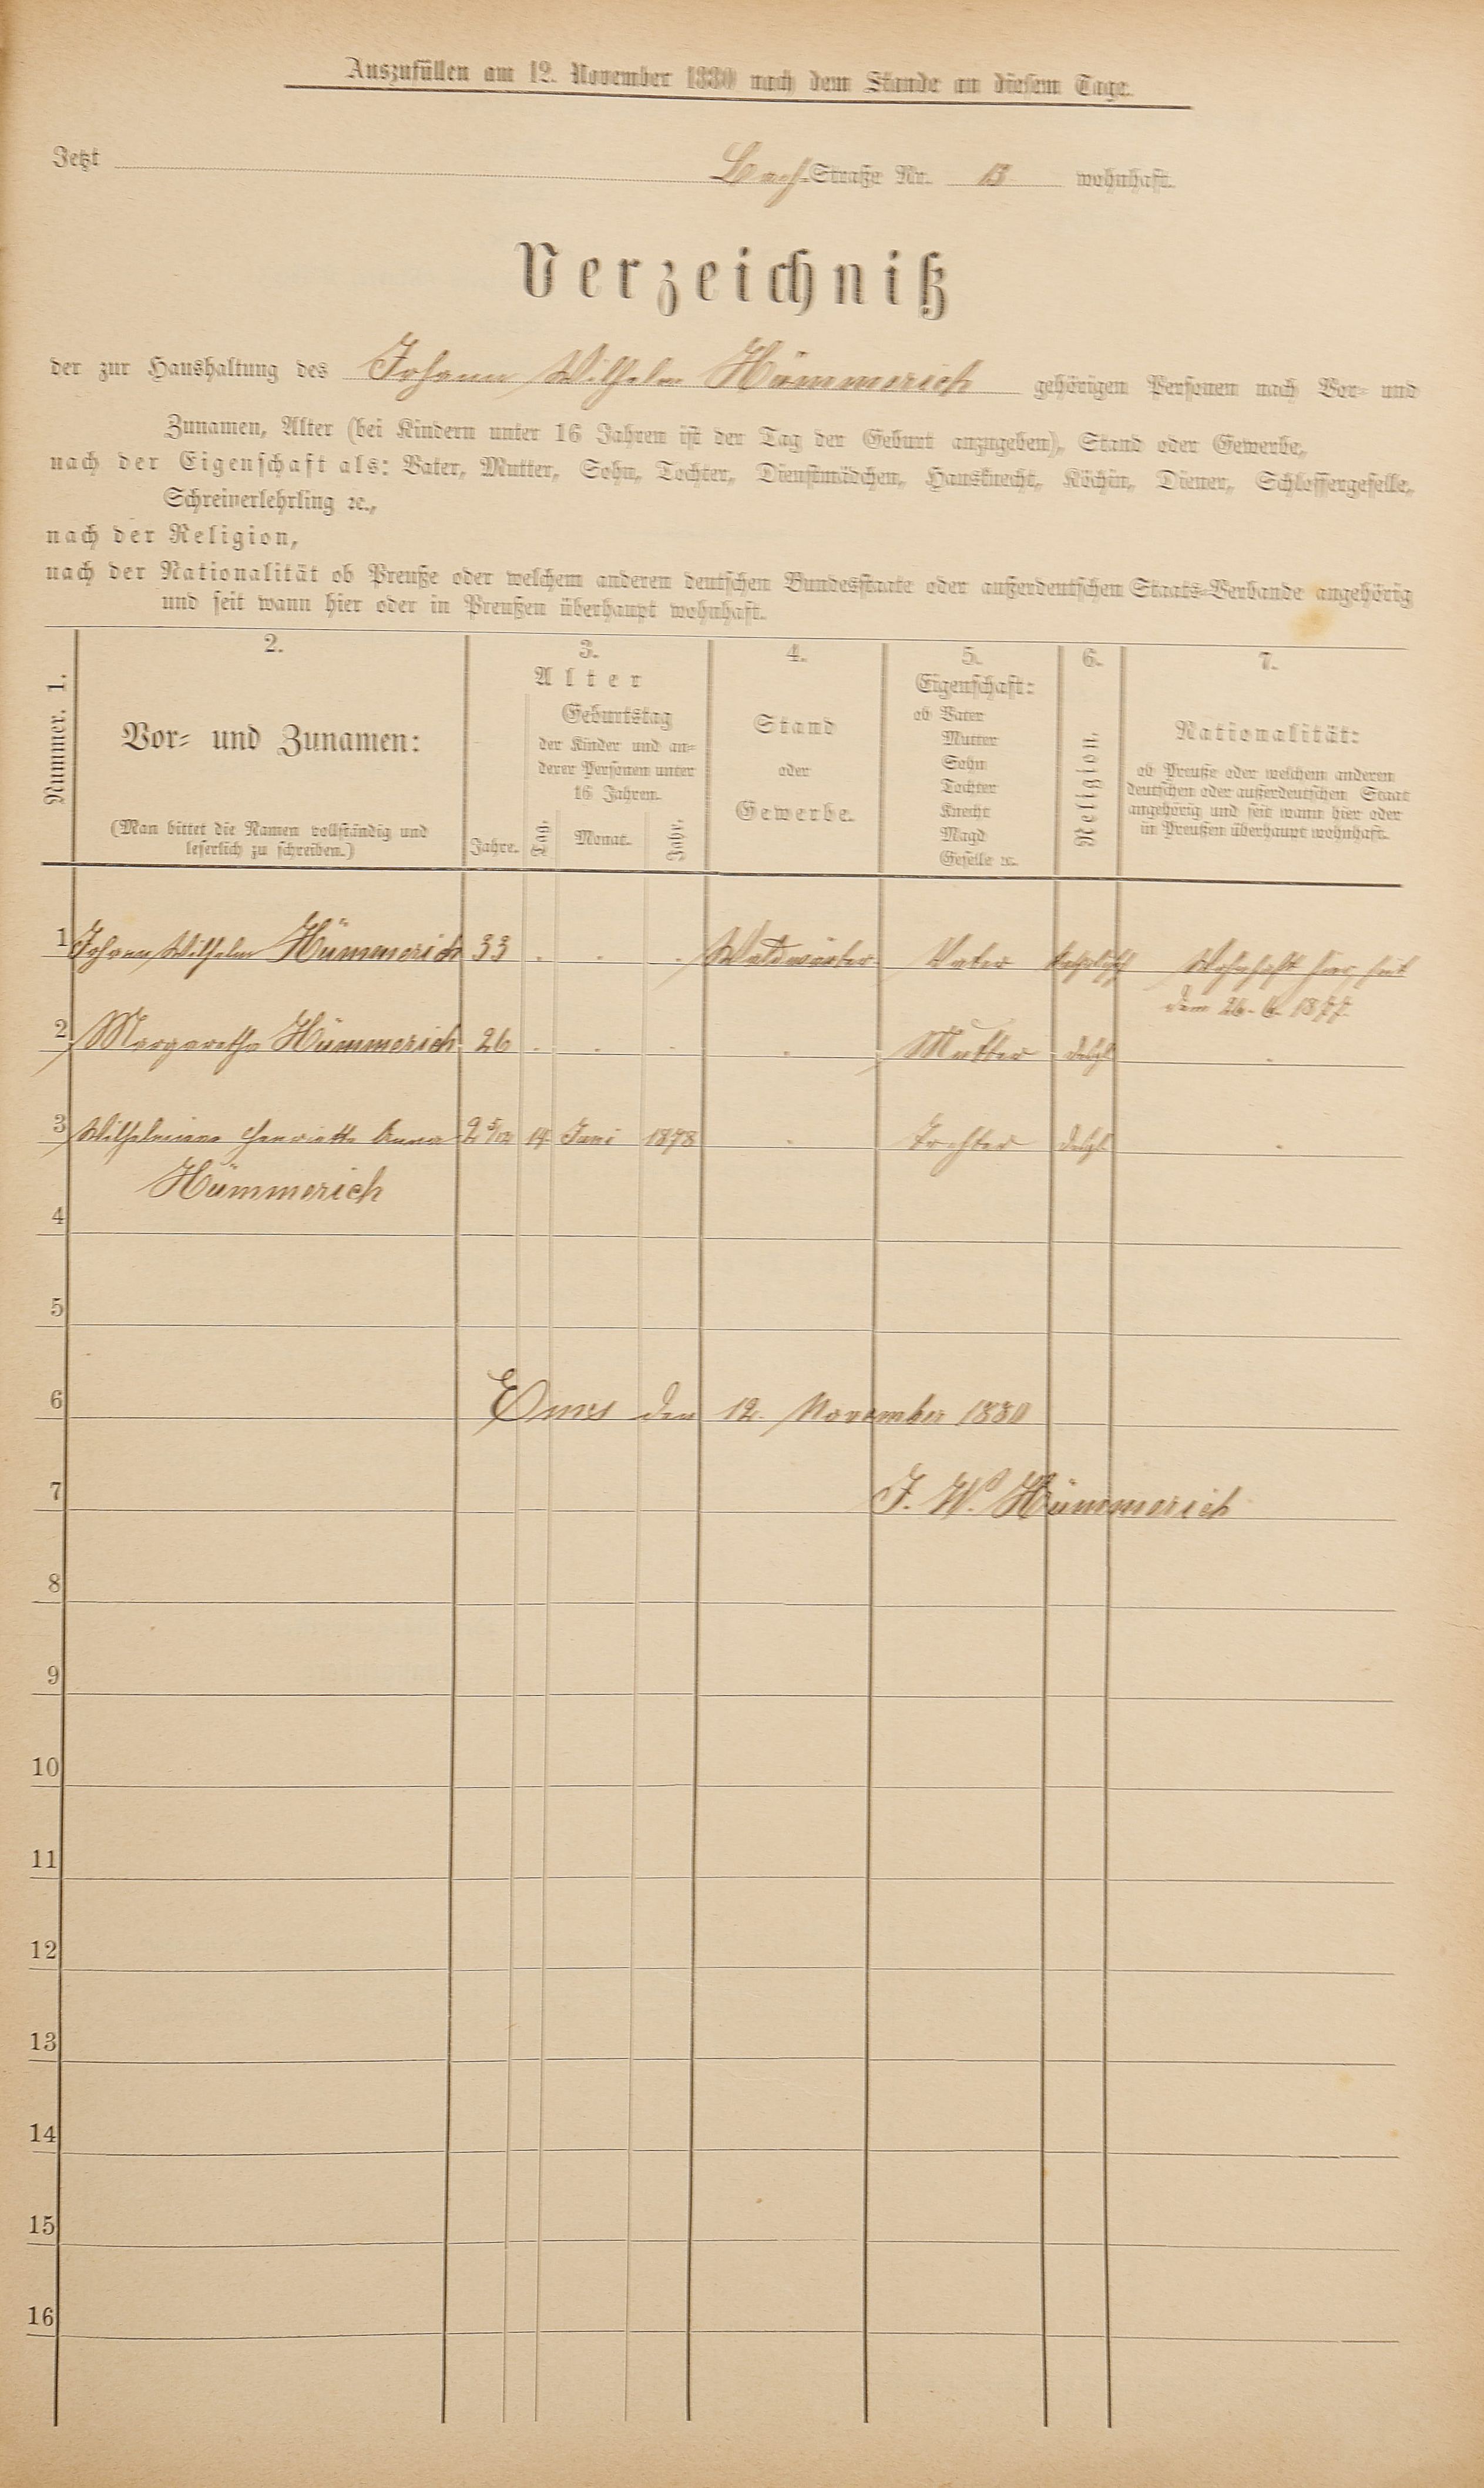 Auszufüllen am 12. November 1880 nach dem Stande an diesem Tage.
Jetzt Bach-Straße Nr. 13 wohnhaft.
Verzeichniß
der zur Haushaltung des Johann Wilhelm Hümmerich gehörigen Personen nach Vor- und
Zunamen, Alter (bei Kindern unter 16 Jahren ist der Tag der Geburt anzugeben), Stand oder Gewerbe,
nach der Eigenschaft als: Vater, Mutter, Sohn, Tochter, Dienstmädchen, Hausknecht, Köchin, Diener, Schlossergeselle,
Schreinerlehrling ꝛc.,
nach der Religion,
nach der Nationalität ob Preuße oder welchem anderen deutschen Bundesstaate oder außerdeutschen Staats-Verbande angehörig
und seit wann hier oder in Preußen überhaupt wohnhaft.
Nummer. 1.
2.
Vor- und Zunamen:
(Man bittet die Namen vollständig und
leserlich zu schreiben.)
3.
Alter
Geburtstag
der Kinder und an-
derer Personen unter
16 Jahren.
Jahre. Tag. Monat. Jahr.
4.
Stand
oder
Gewerbe.
5.
Eigenschaft:
ob Vater
Mutter
Sohn
Tochter
Knecht
Magd
Geselle ꝛc.
6.
Religion.
7.
Nationalität:
ob Preuße oder welchem anderen
deutschen oder außerdeutschen Staat
angehörig und seit wann hier oder
in Preußen überhaupt wohnhaft.
1 Johann Wilhelm Hümmerich 33 . . . Waldwärter Vater katholisch Wohnhaft hier seit
dem 26. 6. 1877.
2 Margaretha Hümmerich 26 . . . . Mutter desgl. .
3 Wilhelmina Henriette Anna 2 5/12 14 Juni 1878 . Tochter desgl. .
Hümmerich
4
5
6 Ems den 12. November 1880
7 J. W. Hümmerich
8
9
10
11
12
13
14
15
16